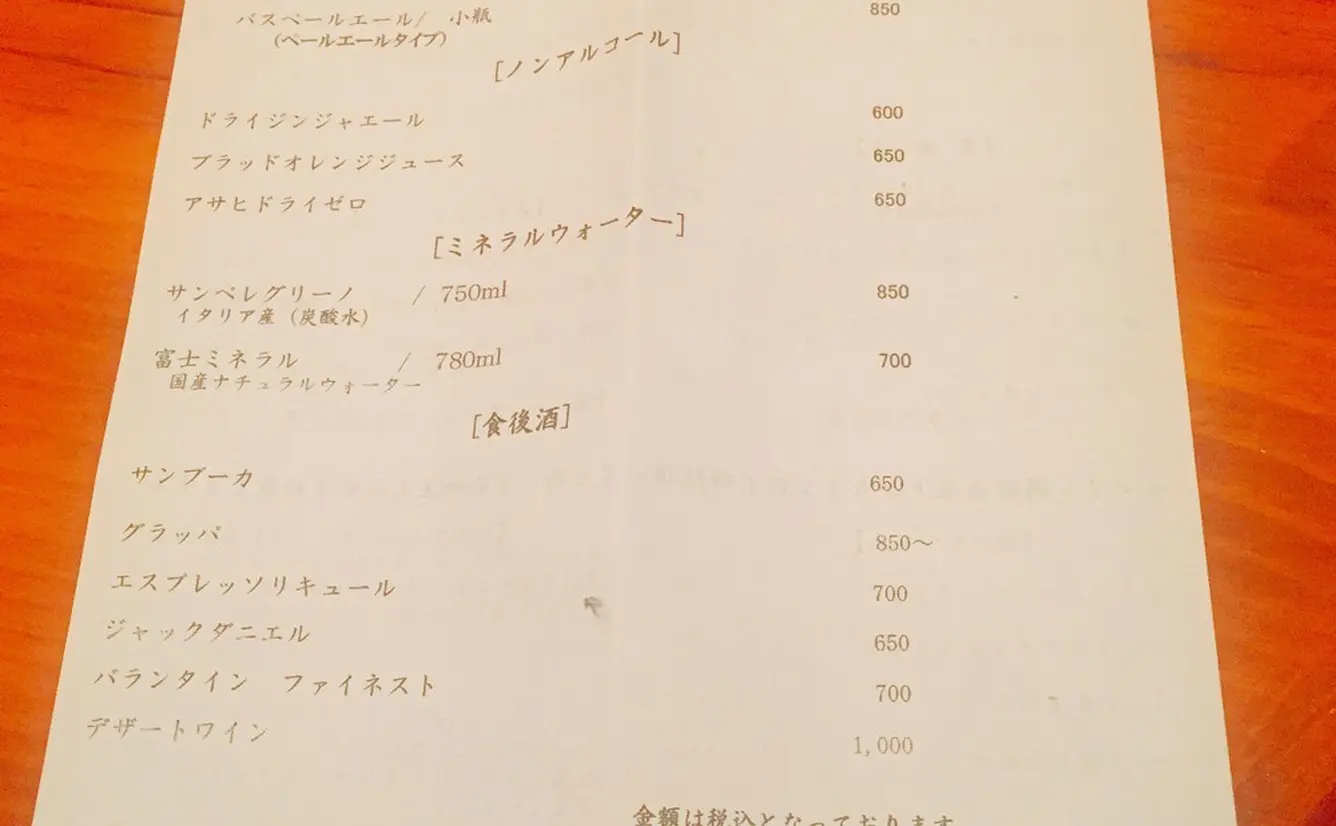 バスペールエール/ 小瓶 850
(ペールエールタイプ)
[ノンアルコール]
ドライジンジャエール 600
ブラッドオレンジジュース 650
アサヒドライゼロ 650
[ミネラルウォーター]
サンペレグリーノ / 750ml 850
イタリア産 (炭酸水)
富士ミネラル / 780ml 700
国産ナチュラルウォーター
[食後酒]
サンブーカ 650
グラッパ 850〜
エスプレッソリキュール 700
ジャックダニエル 650
バランタイン ファイネスト 700
デザートワイン 1,000
金額は税込となっております